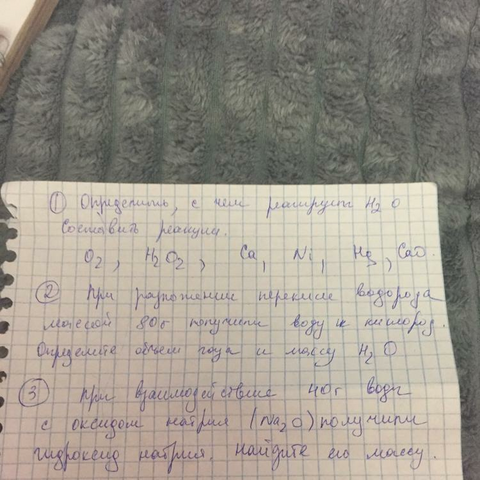 ① Определить, с чем реагирует H₂O
Составить реакции.
O₂, H₂O₂, Ca, Ni, Hg, CaO.
② При разложении перекиси водорода
массой 80г получили воду и кислород.
Определите объем газа и массу H₂O
③ При взаимодействие 40г воды
с оксидом натрия (Na₂O) получили
гидроксид натрия. Найдите его массу.